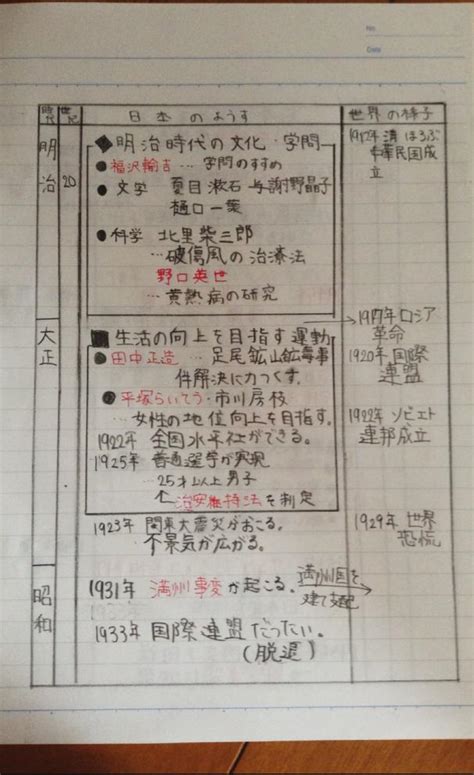 No.
Date
時代 世紀 日本のようす 世界の様子
明治 20
■明治時代の文化・学問
●福沢輸吉…学問のすすめ
●文学 夏目漱石 与謝野晶子
樋口一葉
●科学 北里柴三郎
…破傷風の治療法
野口英世
…黄熱病の研究
1912年 清ほろぶ
中華民国成
立
大正
■生活の向上を目指す運動
●田中正造…足尾鉱山鉱毒事
件解決に力つくす。
●平塚らいてう・市川房枝
…女性の地位向上を目指す。
1922年 全国水平社ができる。
1925年 普通選挙が実現
…25才以上男子
治安維持法を制定
1923年 関東大震災がおこる。
不景気が広がる。
→1917年ロシア
革命
1920年 国際
連盟
1922年 ソビエト
連邦成立
1929年 世界
恐慌
昭和
1931年 満州事変が起こる。満州国を
建て支配
1933年 国際連盟だったい。
(脱退)